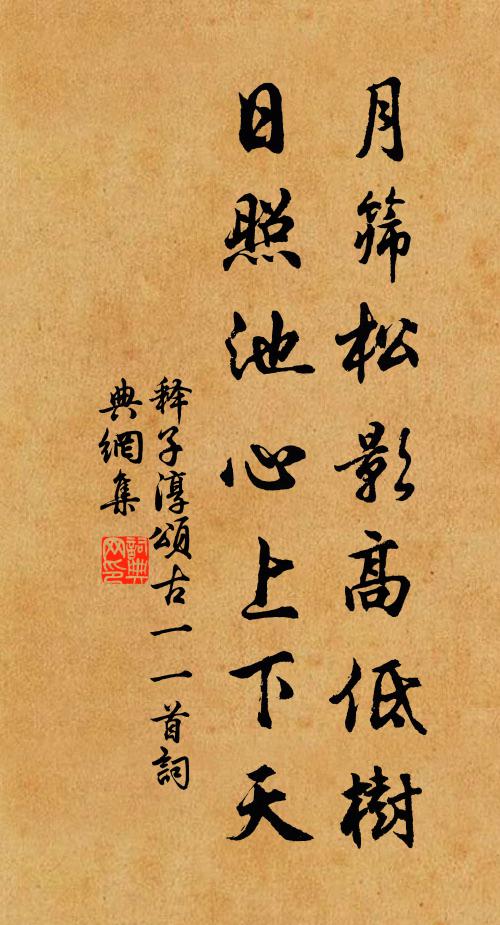 月筛松影高低樹
日照池心上下天
释子淳頌古一一首詞
典網集
詞典
网印